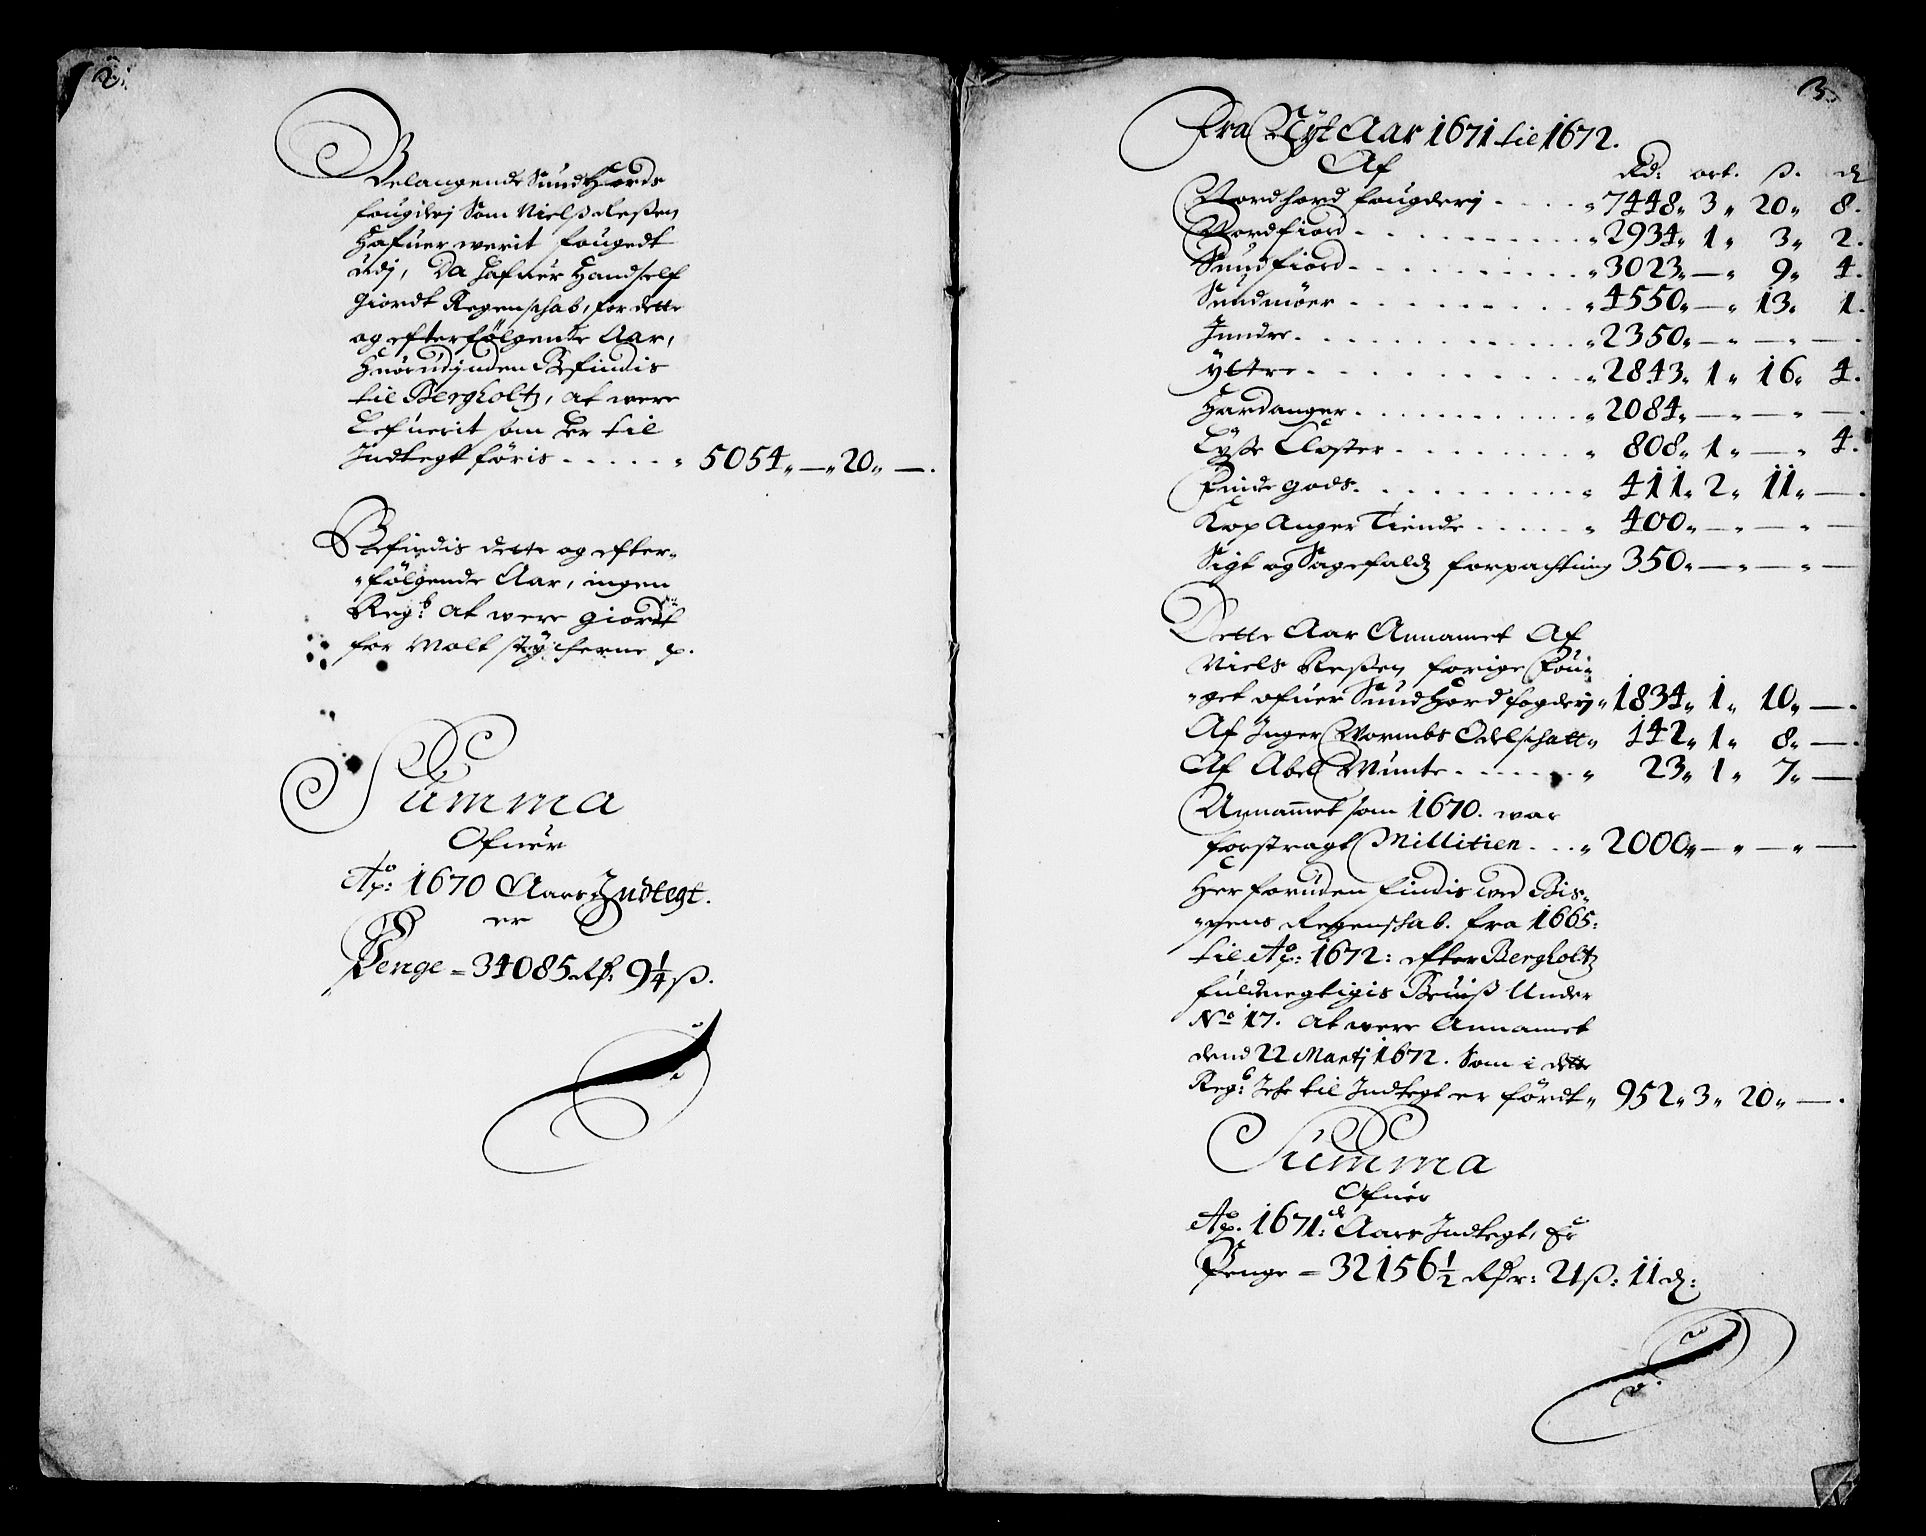 2.
Belangende SundHords
fougderj Som Nielß Reßen
Hafuer werit fougedt
udj, Da hafuer Handself
giordt Regenschab, for dette
og efterfølgende Aar,
Huorudjnden Befindis
til Bergholtz, at were
Lefuerit som er til
Indtegt føris . . . . . „ 5054„ —„ 20„ —.
Befindis dette og efter„
„følgende Aar, ingen
Regb: at were giordt
for Malt støcherne p.
Summa
Ofuer
Ao: 1670 Aars Indtegt.
er
Penge = 34085 Rdr: 9 1/4 ß.
3.
Fra Nyt Aar 1671 til 1672.
Af
Rd: ort. ß. d
Nordhord fougderij . . . . „ 7448„ 3„ 20„ 8.
Nordfiord . . . . . . . „ 2934„ 1„ 3„ 2.
Sundfiord . . . . . . . „ 3023„ —„ 9„ 4.
Sundmøer . . . . . . . „ 4550„ —„ 13„ 1.
Inndre . . . . . . . . „ 2350„ —„ —„ —.
Yttre . . . . . . . . „ 2843„ 1„ 16„ 4.
Hardanger . . . . . . . „ 2084„ —„ —„ —.
Lysse Closter . . . . . . „ 808„ 1„ —„ 4.
Finde gods . . . . . . . „ 411„ 2„ 11„ —.
Kop Anger Tiende . . . . . „ 400„ —„ —„ —
Sigt og Sagefaldz forpachtning 350„ —„ —„ —
Dette Aar Annamet Af
Niels Reßen forige Fou„
„get ofuer SundHord fogderij „ 1834„ 1„ 10„ —.
Af Inger Wormbs Odelschatt „ 142„ 1„ 8„ —.
Af Abel Munte . . . . . . „ 23„ 1„ 7„ —
Annammet som 1670. war
forstragt Millitien . . . „ 2000„ —„ —„ —
Her foruden findis wed Bis„
„pens Regenschab. fra 1665:
til Ao: 1672: efter Bergholtz
fuldmegtigis Beuiß Under
No 17. At were Annamet
dend 22 Martj 1672. Som i dette
Regb: Iche til Indtegt er førdt „ 952„ 3„ 20„ —.
Summa
Ofuer
Ao. 1671: Aars Indtegt, Er
Penge = 32156 1/2 Rdr: 21 ß: 11 d: